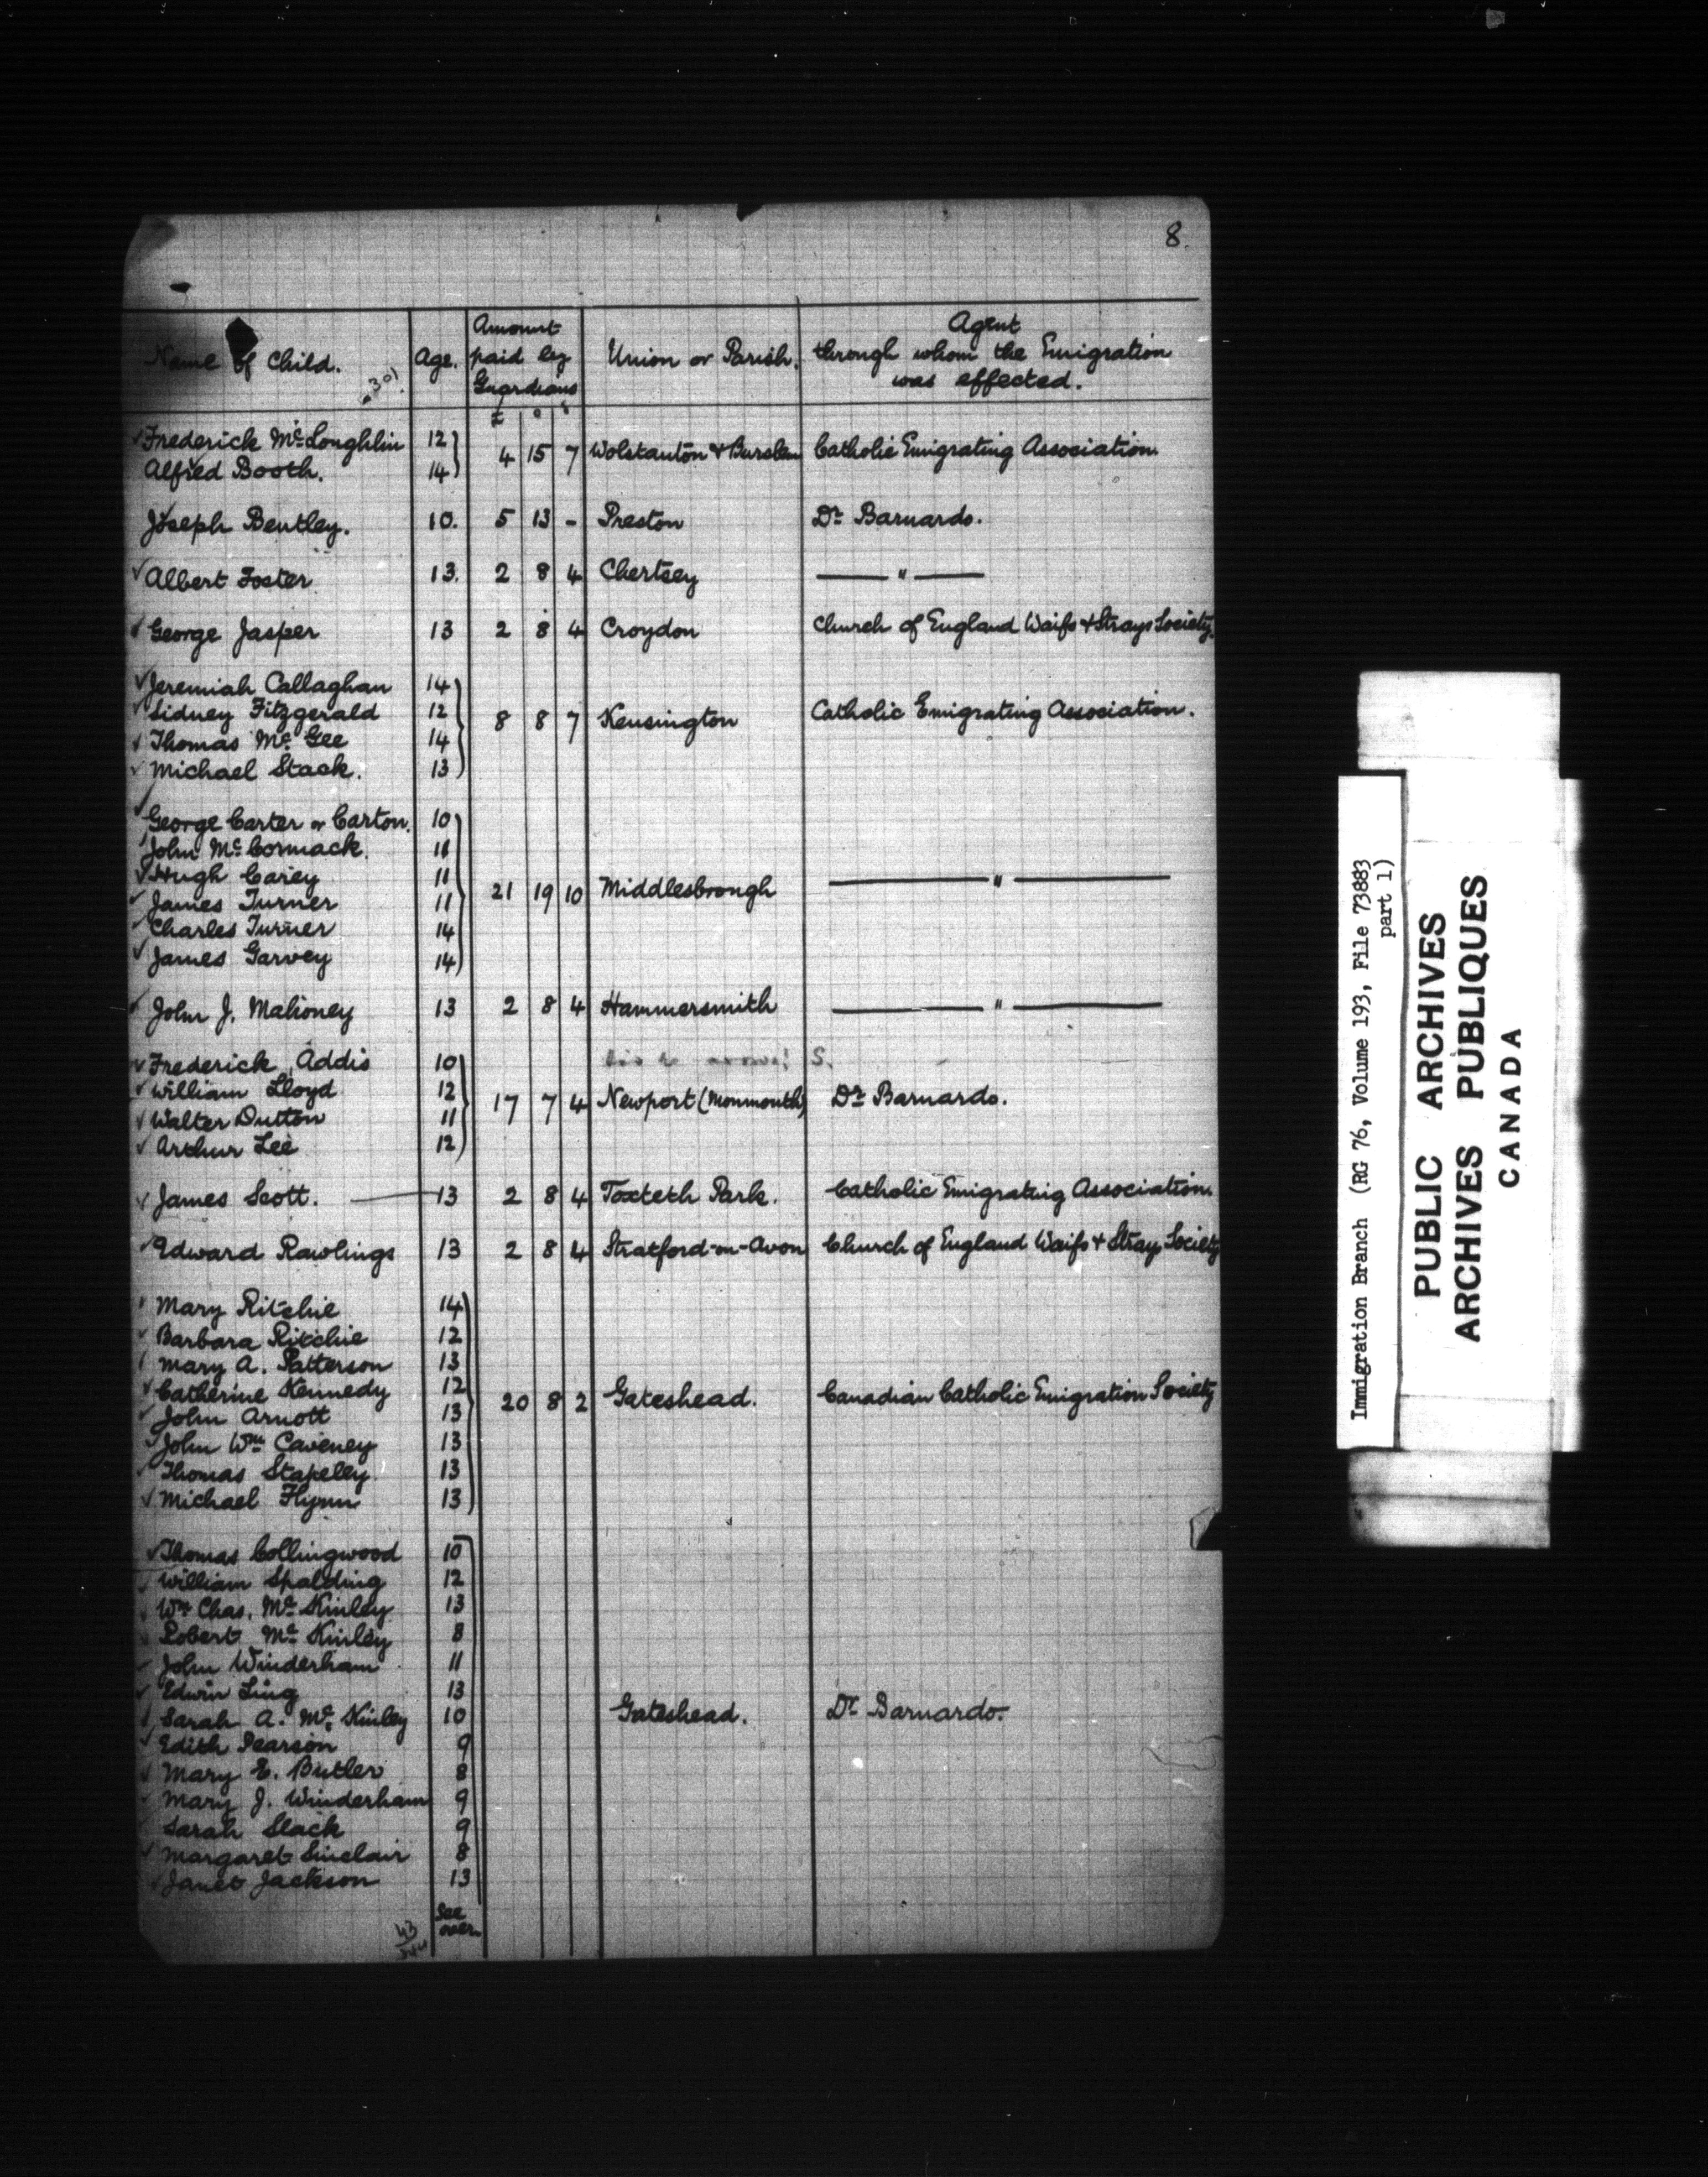 8.
Name of Child. Age. Amount paid by Guardians Union or Parish. Agent through whom the Emigration was effected.
301
£ s d
Frederick Mc Loughlin 12
Alfred Booth. 14 4 15 7 Wolstanton & Burslem Catholic Emigrating Association.
Joseph Bentley. 10. 5 13 - Preston Dr Barnardo.
Albert Foster 13. 2 8 4 Chertsey — " —
George Jasper 13 2 8 4 Croydon Church of England Waifs & Strays Society.
Jeremiah Callaghan 14
Sidney Fitzgerald 12 8 8 7 Kensington Catholic Emigrating Association.
Thomas Mc Gee 14
Michael Stack. 13
George Carter or Carton. 10
John Mc Cormack. 11
Hugh Carey 11 21 19 10 Middlesbrough — " —
James Turner 11
Charles Turner 14
James Garvey 14
John J. Mahoney 13 2 8 4 Hammersmith — " —
Frederick Addis 10
William Lloyd 12 17 7 4 Newport (Monmouth) Dr Barnardo.
Walter Dutton 11
Arthur Lee 12
James Scott. — 13 2 8 4 Toxteth Park. Catholic Emigrating Association.
Edward Rawlings 13 2 8 4 Stratford-on-Avon Church of England Waifs & Strays Society
Mary Ritchie 14
Barbara Ritchie 12
Mary A. Patterson 13
Catherine Kennedy 12 20 8 2 Gateshead. Canadian Catholic Emigration Society
John Arnott 13
John Wm Caveney 13
Thomas Stapeley 13
Michael Flynn 13
Thomas Collingwood 10
William Spalding 12
Wm Chas. Mc Kinley 13
Robert Mc Kinley 8
John Winderham 11
Edwin Ling 13
Sarah A. Mc Kinley 10 Gateshead. Dr Barnardo.
Edith Pearson 9
Mary E. Butler 8
Mary J. Winderham 9
Sarah Slack 9
Margaret Sinclair 8
Janet Jackson 13
See over.
43
Immigration Branch (RG 76, Volume 193, File 73883
part 1)
PUBLIC ARCHIVES
ARCHIVES PUBLIQUES
CANADA